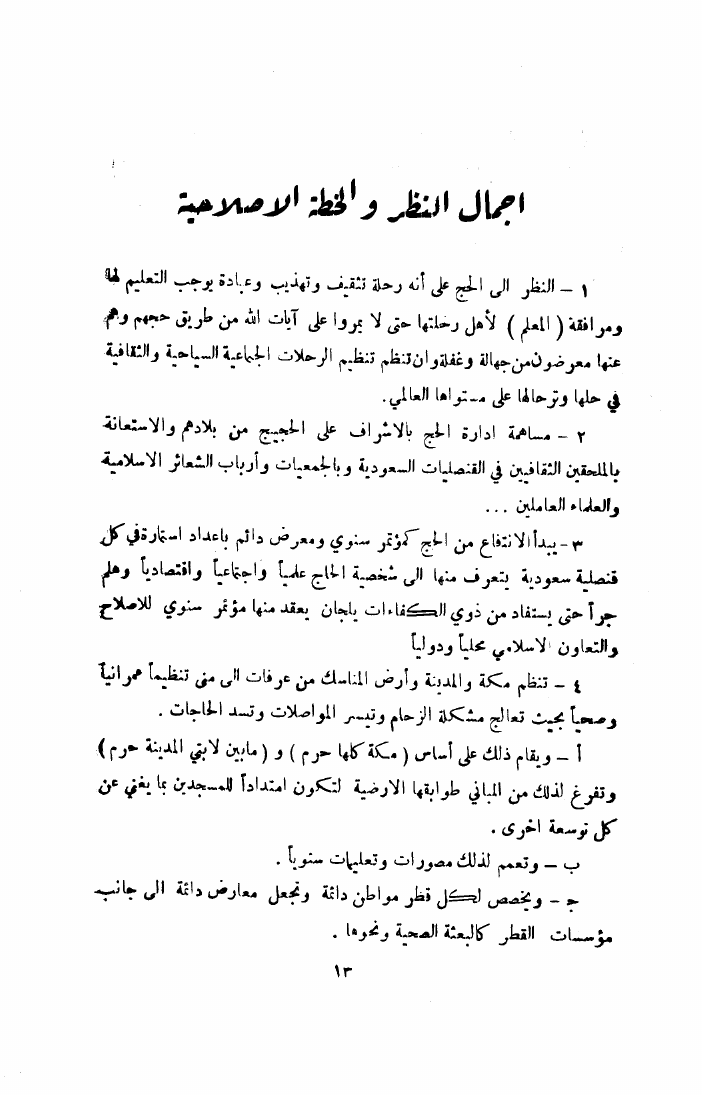 اجمال النظر والخطة الاصلاحية
١ – النظر الى الحج على أنه رحلة تثقيف وتهذيب وعبادة يوجب التعليم لها
ومرافقة ( المعلم ) لأهل رحلتها حتى لا يمروا على آيات الله من طريق حجهم وهم
عنها معرضون من جهالة وغفلة وان تنظم تنظيم الرحلات الجماعية السياحية والثقافية
في حلها وترحالها على مستواها العالمي.
٢ – مساهمة ادارة الحج بالاشراف على الحجيج من بلادهم والاستعانة
بالملحقين الثقافيين في القنصليات السعودية وبالجمعيات وأرباب الشعائر الاسلامية
والعلماء العاملين ...
٣ – يبدأ الانتفاع من الحج كمؤتمر سنوي ومعرض دائم باعداد استمارة في كل
قنصلية سعودية يتعرف منها الى شخصية الحاج علمياً واجتماعياً واقتصادياً وهلم
جراً حتى يستفاد من ذوي الكفاءات بلجان يعقد منها مؤتمر سنوي للاصلاح
والتعاون الاسلامي محلياً ودولياً
٤ – تنظم مكة والمدينة وأرض المناسك من عرفات الى منى تنظيماً عمرانياً
وصحياً بحيث تعالج مشكلة الزحام وتيسر المواصلات وتسد الحاجات .
أ – ويقام ذلك على أساس ( مكة كلها حرم ) و ( مابين لابتي المدينة حرم )
وتفرغ لذلك من المباني طوابقها الارضية لتكون امتداداً للمسجدين بما يغني عن
كل توسعة اخرى .
ب – وتعمم لذلك مصورات وتعليمات سنوياً .
ج – ويخصص لكل قطر مواطن دائمة وتجعل معارض دائمة الى جانب
مؤسسات القطر كالبعثة الصحية ونحوها .
١٣